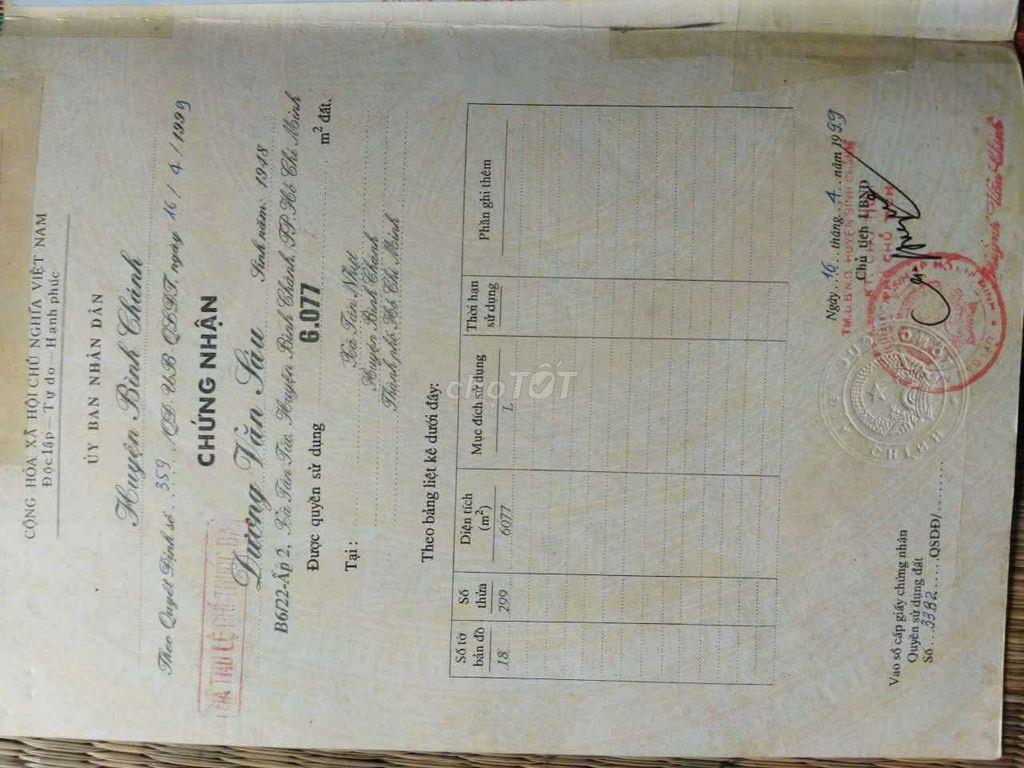 CỘNG HÒA XÃ HỘI CHỦ NGHĨA VIỆT NAM
Độc lập — Tự do — Hạnh phúc
ỦY BAN NHÂN DÂN
Huyện Bình Chánh
Theo Quyết Định số 359 /QĐ UB QĐĐT, ngày 16 / 4 / 1999
CHỨNG NHẬN
ĐÃ THU LỆ PHÍ
Dương Văn Sáu Sinh năm 1948
B6/22-Ấp 2, Xã Tân Túc, Huyện Bình Chánh, TP. Hồ Chí Minh
Được quyền sử dụng 6.077 m² đất.
Tại : Xã Tân Nhựt
Huyện Bình Chánh
Thành phố Hồ Chí Minh
Theo bảng liệt kê dưới đây:
Số tờ bản đồ Số thửa Diện tích (m²) Mục đích sử dụng Thời hạn sử dụng Phần ghi thêm
18 299 6077 L
choTỐT
Ngày 16 tháng 4 năm 1999
TM.U.B.N.D. HUYỆN BÌNH CHÁNH
Chủ tịch UBND
Vào sổ cấp giấy chứng nhận
Quyền sử dụng đất
Số 3382 QSDĐ/